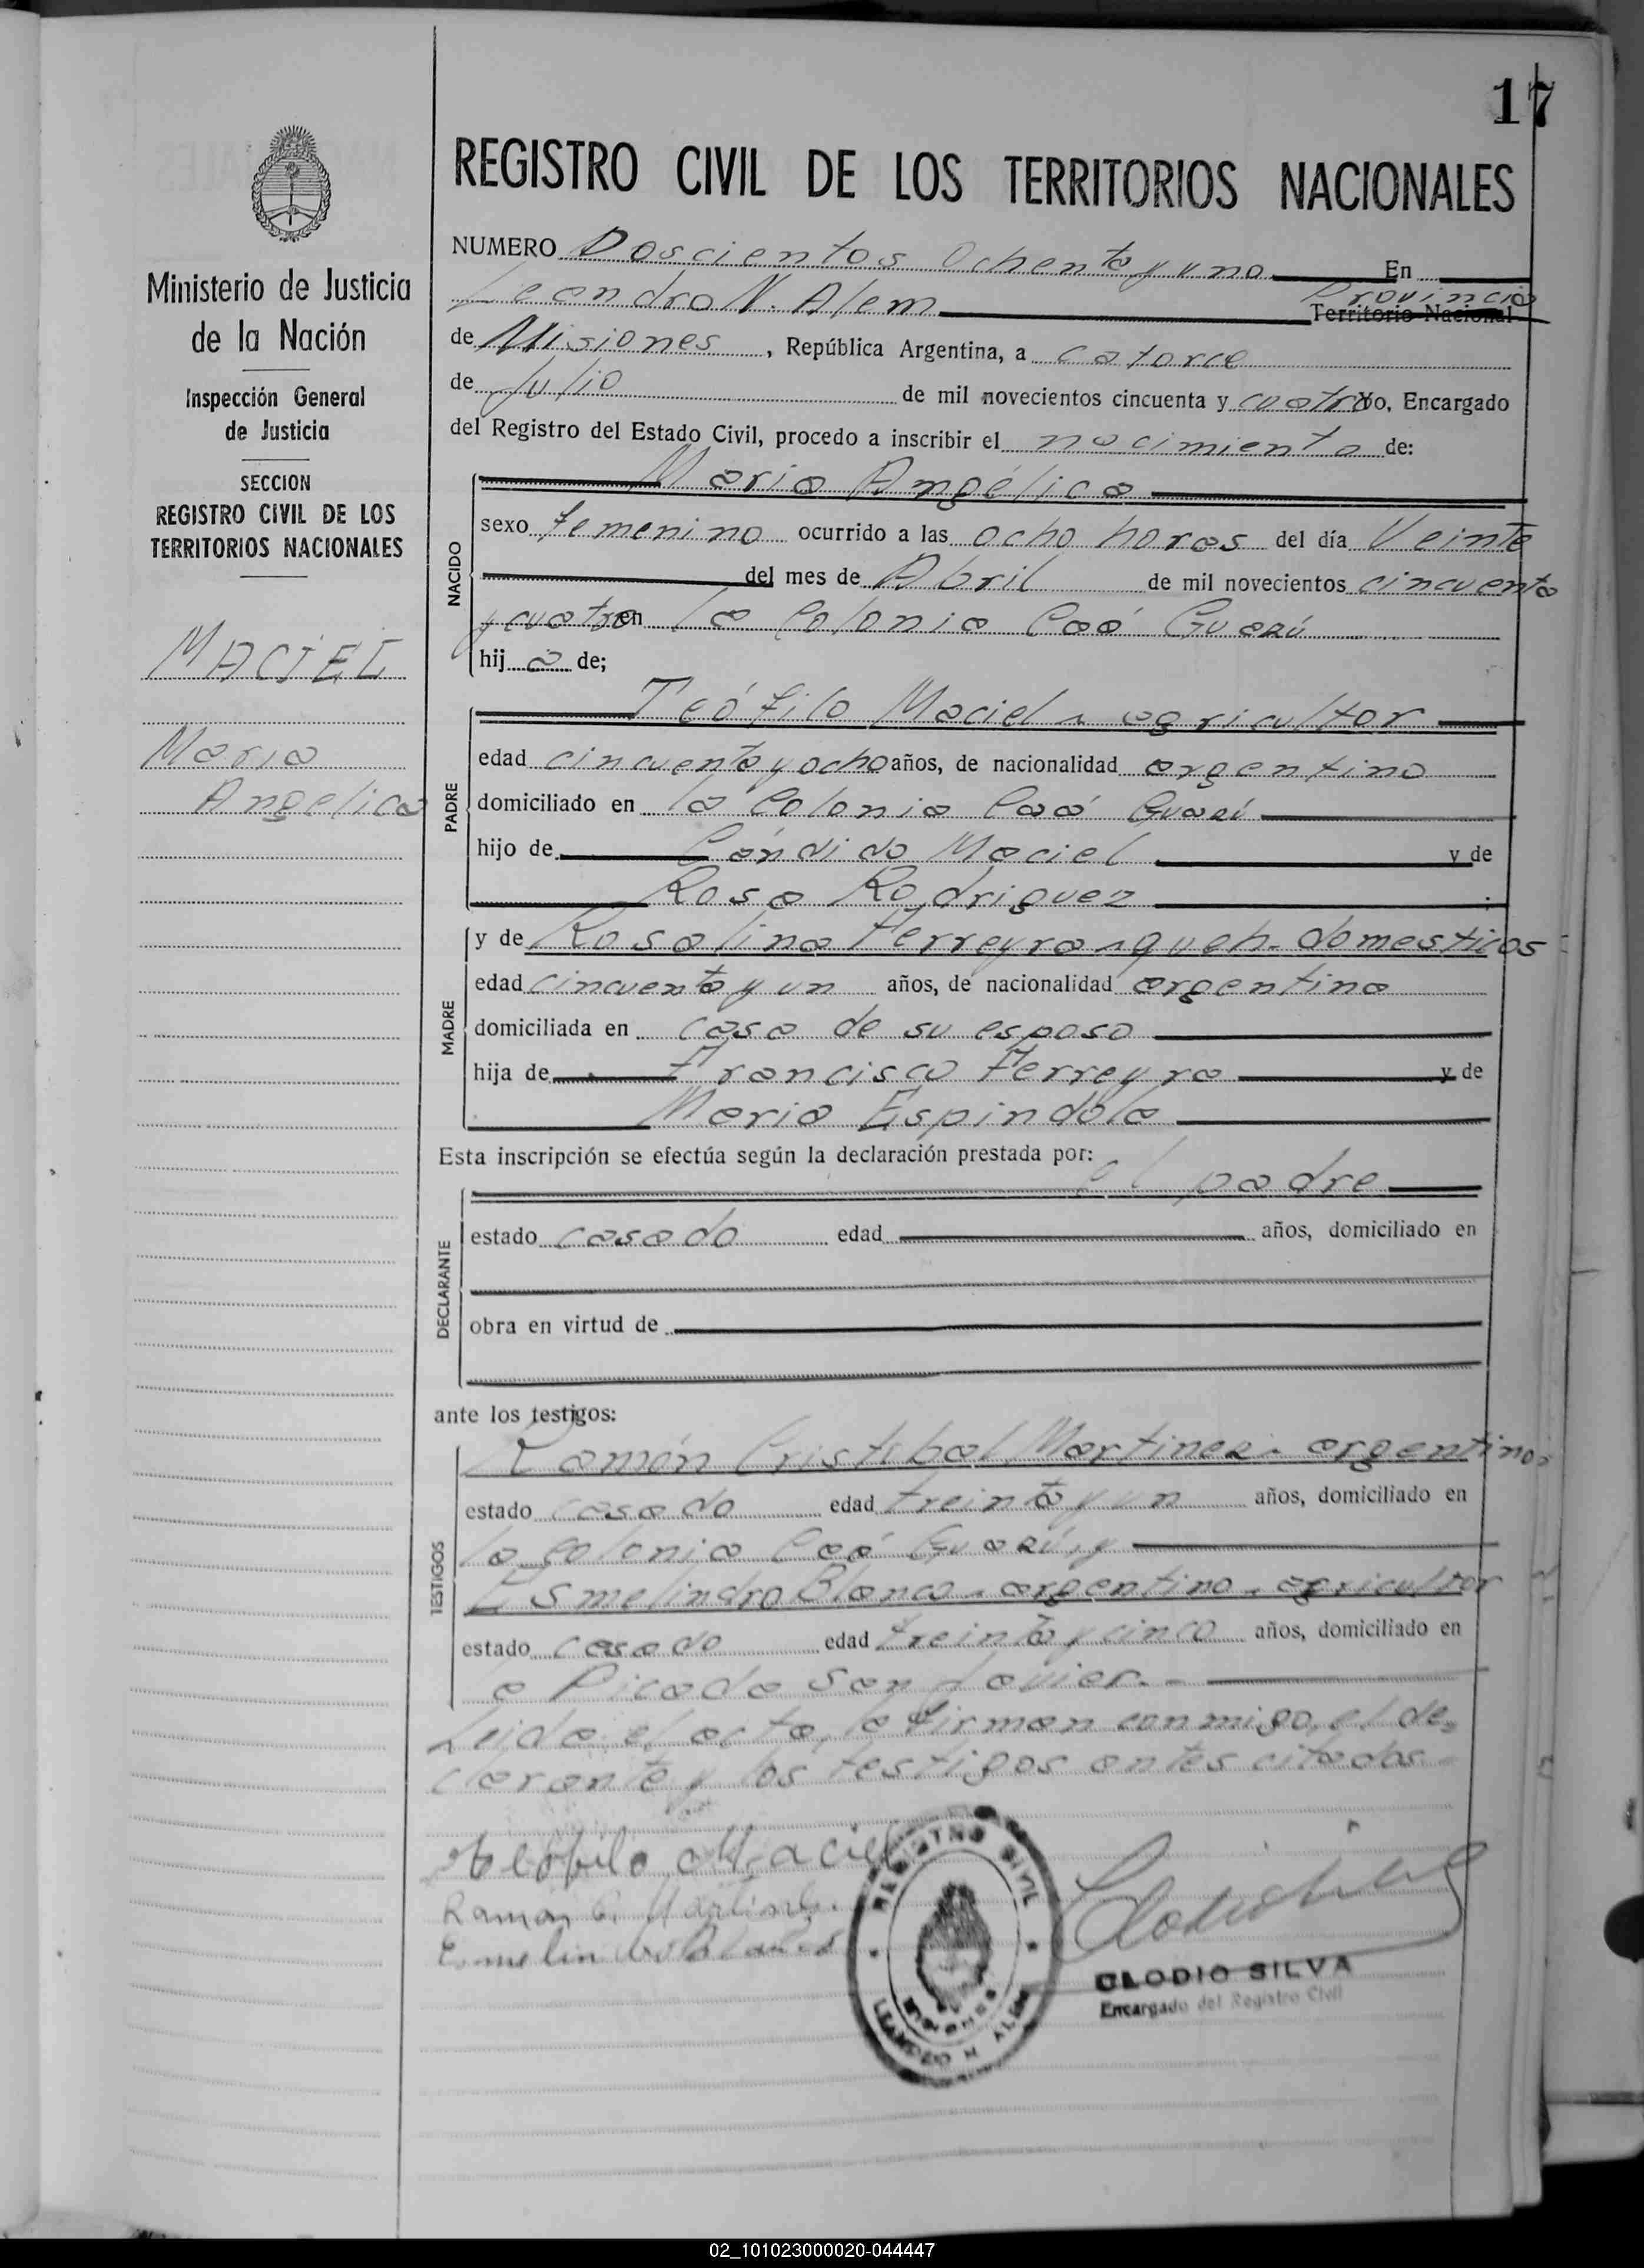 17
REGISTRO CIVIL DE LOS TERRITORIOS NACIONALES
NUMERO Doscientos Ochenta y uno En
Leandro N. Alem Provincia
Territorio Nacional
de Misiones, República Argentina, a catorce
de Julio de mil novecientos cincuenta y cuatro Yo, Encargado
del Registro del Estado Civil, procedo a inscribir el nacimiento de:
Maria Angélica
NACIDO
sexo femenino ocurrido a las ocho horas del día Veinte
del mes de Abril de mil novecientos cincuenta
y cuatro en la Colonia Caá Guazú
hij a de;
Teófilo Maciel - agricultor
PADRE
edad cincuenta y ocho años, de nacionalidad argentino
domiciliado en la Colonia Caá Guazú
hijo de Cándido Maciel y de
Rosa Rodriguez ;
y de Rosalina Ferreyra - queh. domesticos
MADRE
edad cincuenta y un años, de nacionalidad argentina
domiciliada en casa de su esposo
hija de Francisco Ferreyra y de
Maria Espindola
Esta inscripción se efectúa según la declaración prestada por:
el padre
DECLARANTE
estado casado edad años, domiciliado en
obra en virtud de
ante los testigos:
Ramón Cristobal Martinez - argentino,
TESTIGOS
estado casado edad treinta y un años, domiciliado en
la Colonia Caá Guazú, y
Esmelindro Blanco - argentino - agricultor
estado casado edad treinta y cinco años, domiciliado en
a Picada San Javier. -
Leida el acta, la firman conmigo, el de=
clarante y los testigos antes citados -
Teofilo Maciel
Ramon C. Martinez
REGISTRO CIVIL
MISIONES
LEANDRO N. ALEM
CLODIO SILVA
Encargado del Registro Civil
Ministerio de Justicia
de la Nación
Inspección General
de Justicia
SECCION
REGISTRO CIVIL DE LOS
TERRITORIOS NACIONALES
MACIEL
Maria
Angelica
02_101023000020-044447